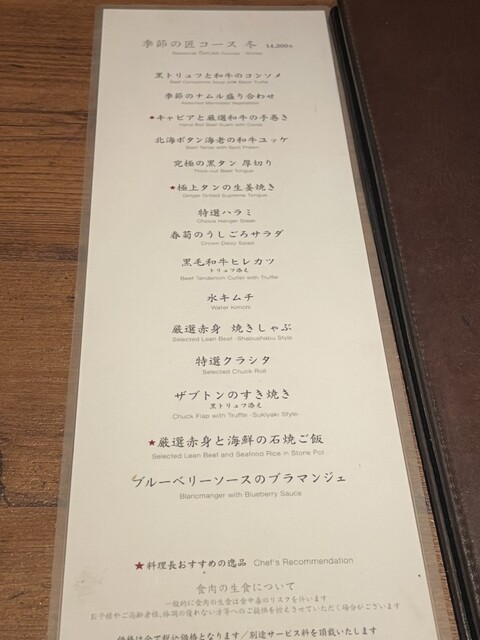 季節の匠コース 冬 14,300円
黒トリュフと和牛のコンソメ
Beef Consomme Soup with Black Truffle
季節のナムル盛り合わせ
Assorted Marinated Vegetables
★キャビアと厳選和牛の手巻き
Hand Roll Beef Sushi with Caviar
北海ボタン海老の和牛ユッケ
Beef Tartar with Spot Prawn
究極の黒タン 厚切り
Thick-cut Beef Tongue
★極上タンの生姜焼き
Ginger Grilled Supreme Tongue
特選ハラミ
Choice Hanger Steak
春菊のうしごろサラダ
Crown Daisy Salad
黒毛和牛ヒレカツ
トリュフ添え
Beef Tenderloin Cutlet with Truffle
水キムチ
Water Kimchi
厳選赤身 焼きしゃぶ
Selected Lean Beef -Shabushabu Style
特選クラシタ
Selected Chuck Roll
ザブトンのすき焼き
黒トリュフ添え
Chuck Flap with Truffle -Sukiyaki Style-
★厳選赤身と海鮮の石焼ご飯
Selected Lean Beef and Seafood Rice in Stone Pot
ブルーベリーソースのブラマンジェ
Blancmanger with Blueberry Sauce
★料理長おすすめの逸品 Chef's Recommendation
食肉の生食について
一般的に食肉の生食は食中毒のリスクを伴います
お子様やご高齢者様、体調の優れない方等へのご提供を控えさせていただく場合がございます
価格は全て税込価格となります／別途サービス料を頂戴いたします